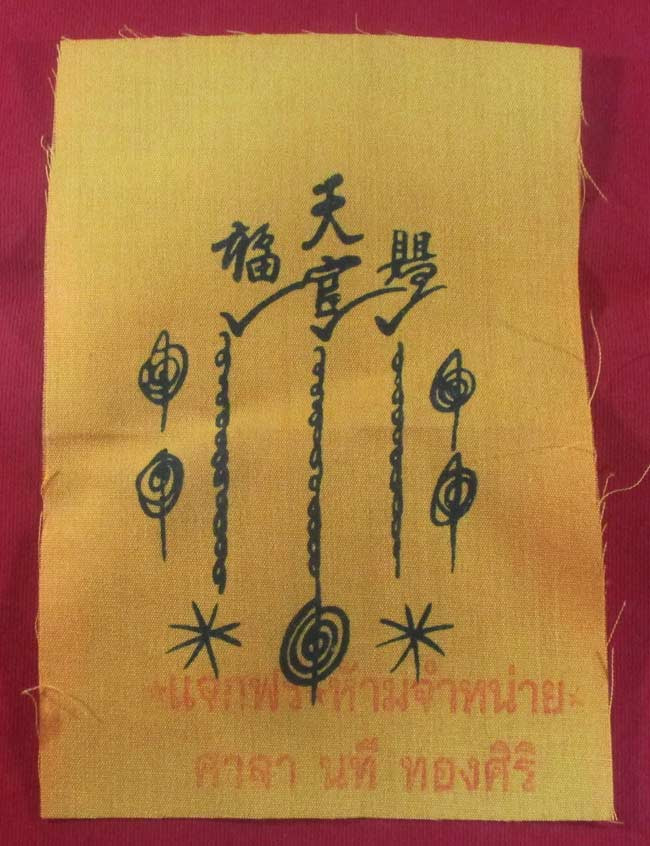 天
福 官 賜
*แจกฟรี ห้ามจำหน่าย*
ศาลา นที ทองศิริ